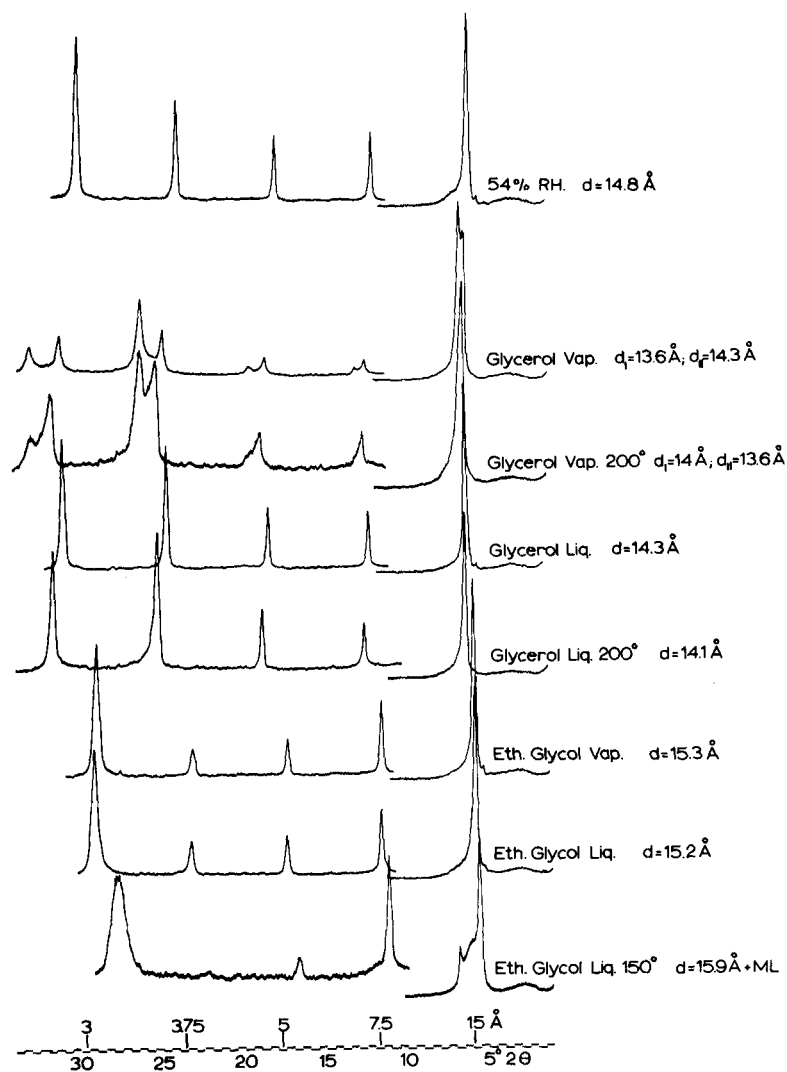 54% RH. d=14.8 Å
Glycerol Vap. dI=13.6 Å; dII=14.3 Å
Glycerol Vap. 200° dI=14 Å; dII=13.6 Å
Glycerol Liq. d=14.3 Å
Glycerol Liq. 200° d=14.1 Å
Eth. Glycol Vap. d=15.3 Å
Eth. Glycol Liq. d=15.2 Å
Eth. Glycol Liq. 150° d=15.9 Å+ML
3 3.75 5 7.5 15 Å
30 25 20 15 10 5° 2θ